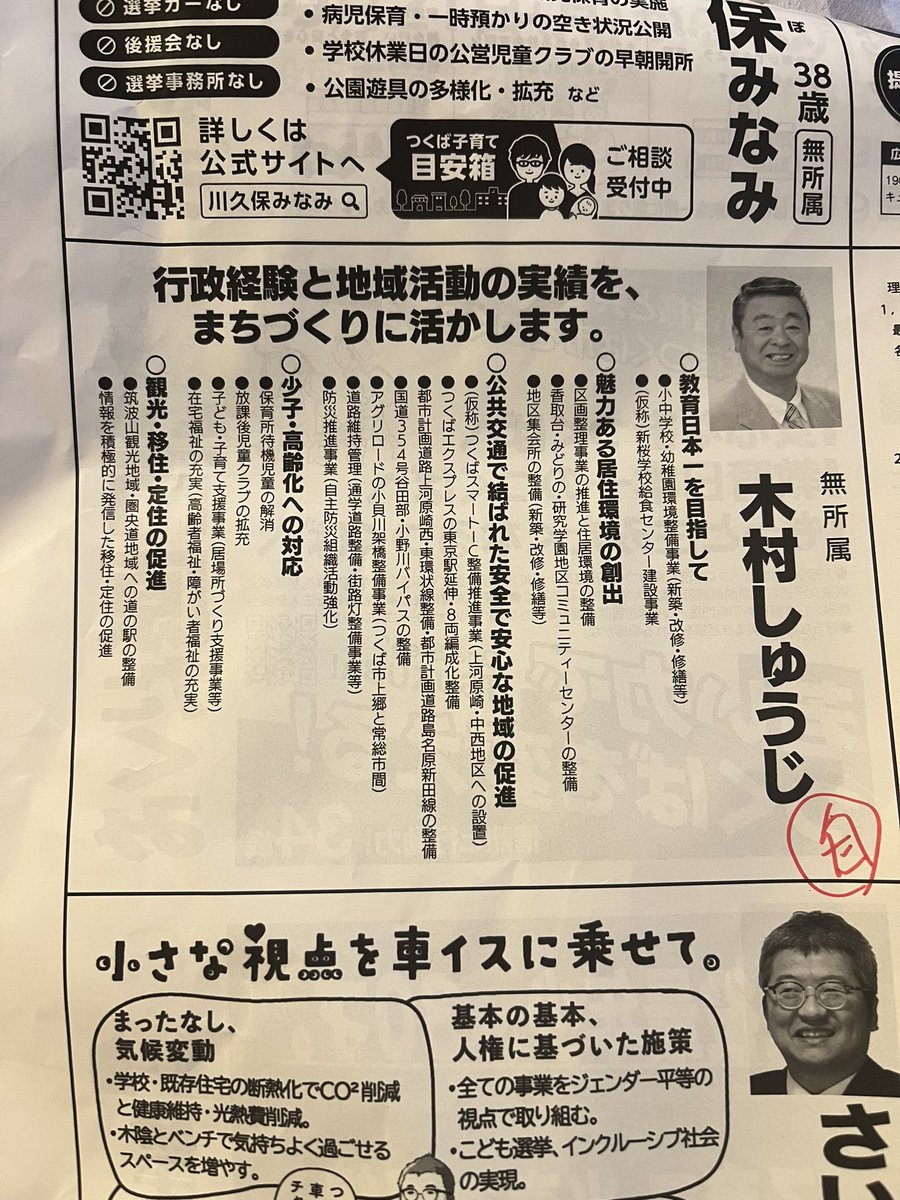 選挙カーなし
後援会なし
選挙事務所なし
の実施
・病児保育・一時預かりの空き状況公開
・学校休業日の公営児童クラブの早朝開所
・公園遊具の多様化・拡充 など
詳しくは
公式サイトへ
川久保みなみ
つくば子育て
目安箱
ご相談
受付中
保みなみ
ぼ
38歳
無所属
行政経験と地域活動の実績を、
まちづくりに活かします。
無所属
木村しゅうじ
○教育日本一を目指して
●小中学校・幼稚園環境整備事業(新築・改修・修繕等)
●(仮称)新桜学校給食センター建設事業
○魅力ある居住環境の創出
●区画整理事業の推進と住居環境の整備
●香取台・みどりの・研究学園地区コミュニティーセンターの整備
●地区集会所の整備(新築・改修・修繕等)
○公共交通で結ばれた安全で安心な地域の促進
●(仮称)つくばスマートIC整備推進事業(上河原崎・中西地区への設置)
●つくばエクスプレスの東京駅延伸・8両編成化整備
●都市計画道路上河原崎西・東環状線整備・都市計画道路島名原新田線の整備
●国道354号谷田部・小野川バイパスの整備
●アグリロードの小貝川架橋整備事業(つくば市上郷と常総市間)
●道路維持管理(通学道路整備・街路灯整備事業等)
●防災推進事業(自主防災組織活動強化)
○少子・高齢化への対応
●保育所待機児童の解消
●放課後児童クラブの拡充
●子ども・子育て支援事業(居場所づくり支援事業等)
●在宅福祉の充実(高齢者福祉・障がい者福祉の充実)
○観光・移住・定住の促進
●筑波山観光地域・圏央道地域への道の駅の整備
●情報を積極的に発信した移住・定住の促進
小さな視点を車イスに乗せて。
まったなし、
気候変動
・学校・既存住宅の断熱化でCO²削減
と健康維持・光熱費削減。
・木陰とベンチで気持ちよく過ごせる
スペースを増やす。
基本の基本、
人権に基づいた施策
・全ての事業をジェンダー平等の
視点で取り組む。
・こども選挙、インクルーシブ社会
の実現。
さい